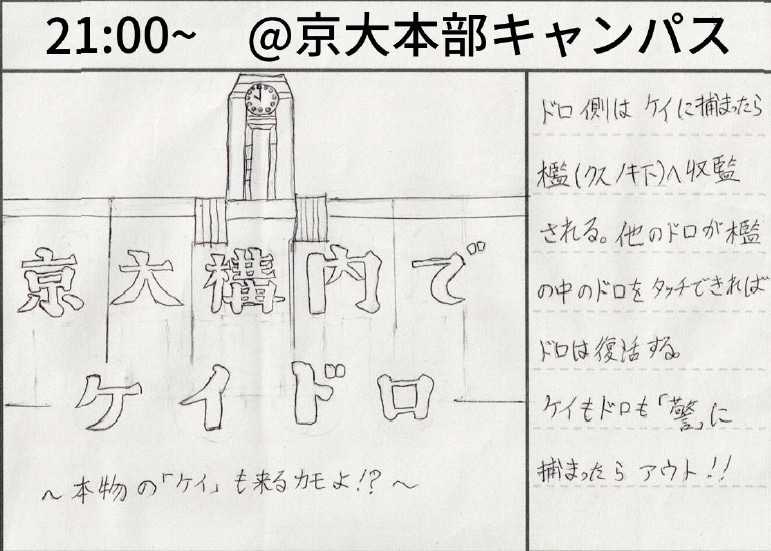 21:00~ @京大本部キャンパス
京大構内で
ケイドロ
～本物の「ケイ」も来るカモよ!?～
ドロ側は ケイに捕まったら
檻(クスノキ下)へ収監
される。他のドロが檻
の中のドロをタッチできれば
ドロは復活する。
ケイもドロも「警」に
捕まったら アウト!!